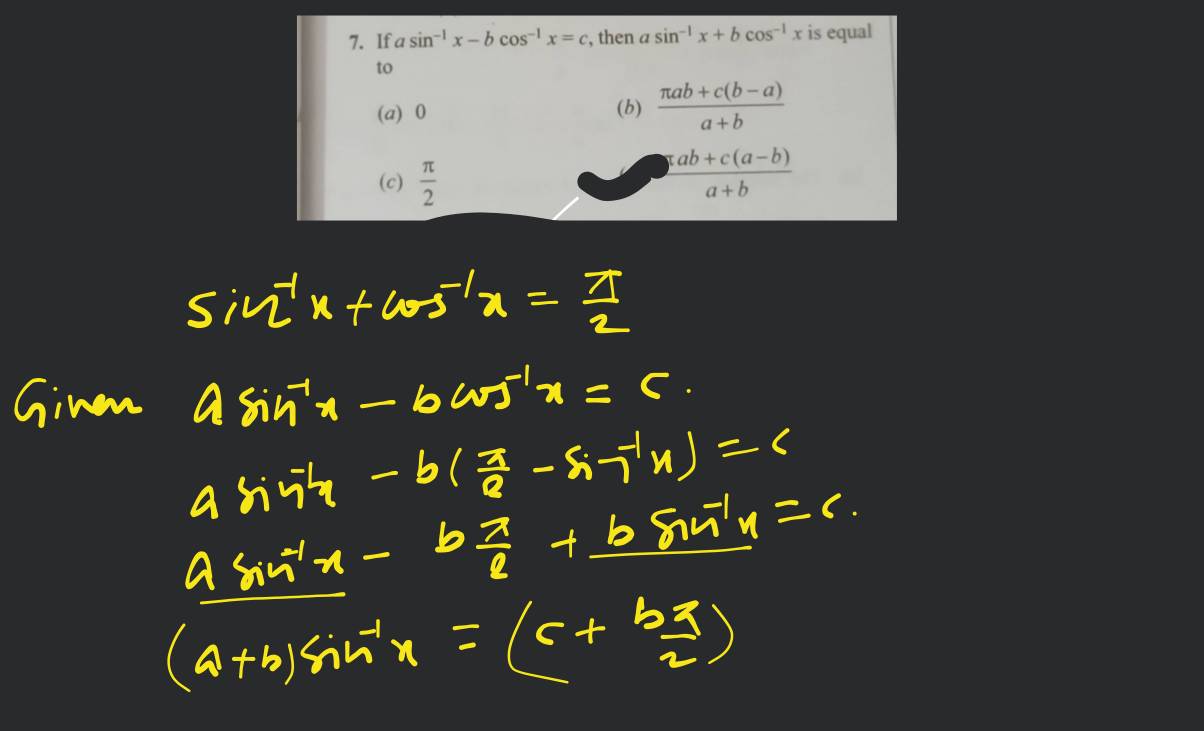 7. If a sin⁻¹ x – b cos⁻¹ x = c, then a sin⁻¹ x + b cos⁻¹ x is equal
to
(a) 0 (b) πab + c(b – a) / a + b
(c) π/2 πab + c(a – b) / a + b
sin⁻¹x + cos⁻¹x = π/2
Given a sin⁻¹x – b cos⁻¹x = c.
a sin⁻¹x – b(π/2 – sin⁻¹x) = c
a sin⁻¹x – bπ/2 + b sin⁻¹x = c.
(a+b) sin⁻¹x = (c + bπ/2)